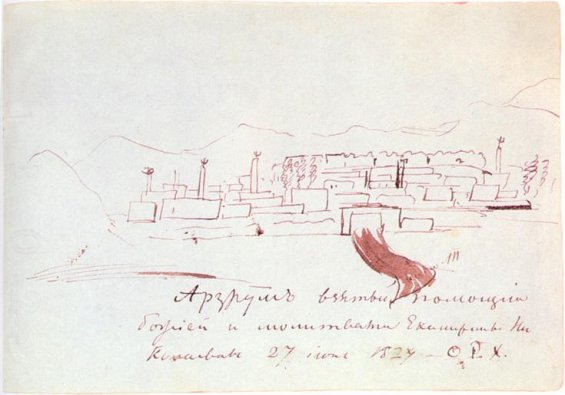 Арзрумъ взятый помощiю
божiей и молитвами Екатерины Ни
колаевны 27 iюня 1829 — О. Р. Х.